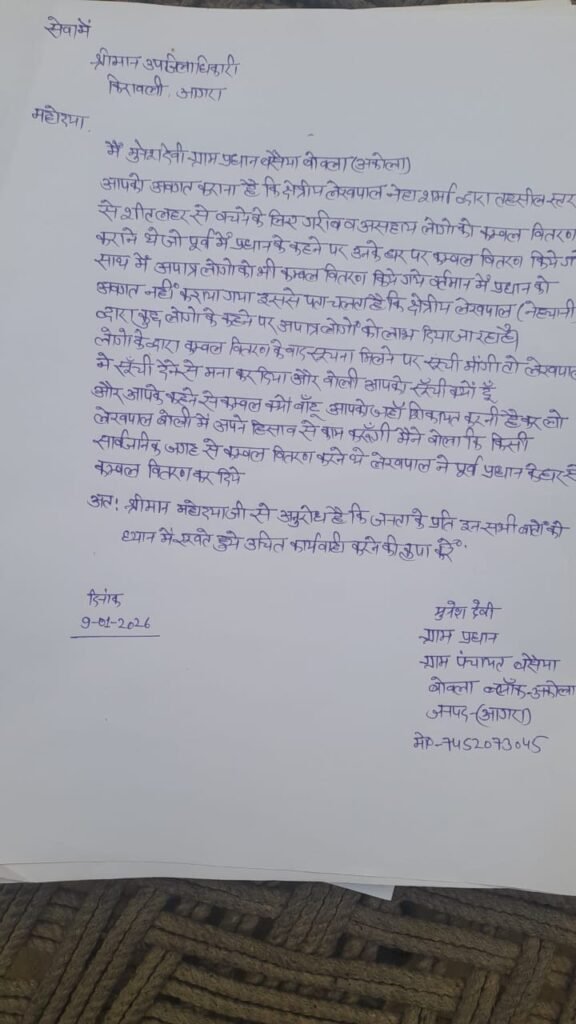 सेवामें
श्रीमान उपजिलाधिकारी
किरावली, आगरा
महोदया,
मैं मुनेश देवी ग्राम प्रधान बेसैया बोक्ला (अकोला)
आपको अवगत कराना है कि क्षेत्रीय लेखपाल नेहा शर्मा द्वारा तहसील स्तर
से शीत लहर से बचने के लिए गरीब व असहाय लोगो को कम्बल वितरण
कराने थे जो पूर्व में प्रधान के कहने पर उनके घर पर कम्बल वितरण किये ग
साथ में अपात्र लोगो को भी कम्बल वितरण किये गये वर्तमान में प्रधान को
अवगत नहीं कराया गया इससे पता चलता है कि क्षेत्रीय लेखपाल (नेहा
द्वारा कुछ लोगो के कहने पर अपात्र लोगो को लाभ दिया जा रहा है)
लोगो के द्वारा कम्बल वितरण के बाद सूचना मिलने पर सूची मांगी तो लेखपाल
ने सूँची देने से मना कर दिया और बोली आपको सूँची क्यों दूँ
और आपके कहने से कम्बल क्यों बाँटू आपको जहाँ शिकायत करनी है कर लो
लेखपाल बोली में अपने हिसाव से काम करूँगी मैने बोला कि किसी
सार्वजनिक जगह से कम्बल वितरण करने थे लेखपाल ने पूर्व प्रधान के घर से
कम्बल वितरण कर दिये
अतः श्रीमान महोदया जी से अनुरोध है कि जनता के प्रति इन सभी बातों को
ध्यान में रखते हुये उचित कार्यवाही करने की कृपा करें"
दिनांक
9-01-2026
मुनेश देवी
ग्राम प्रधान
ग्राम पंचायत बेसैया
बोक्ला ब्लॉक-अकोला
जनपद-(आगरा)
मो०-7452073045